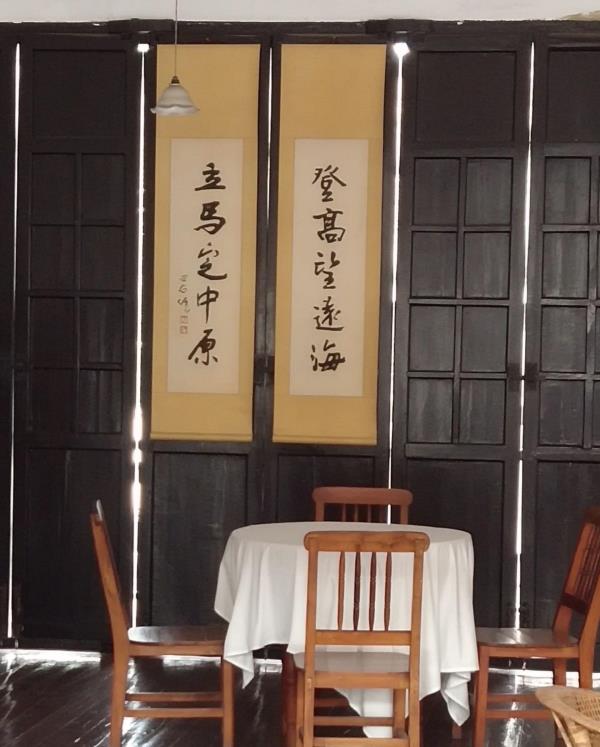 登高望遠海
立馬定中原